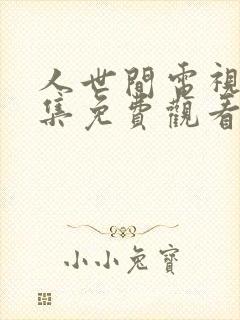 人世間電視
集免費觀看
小小兔寶